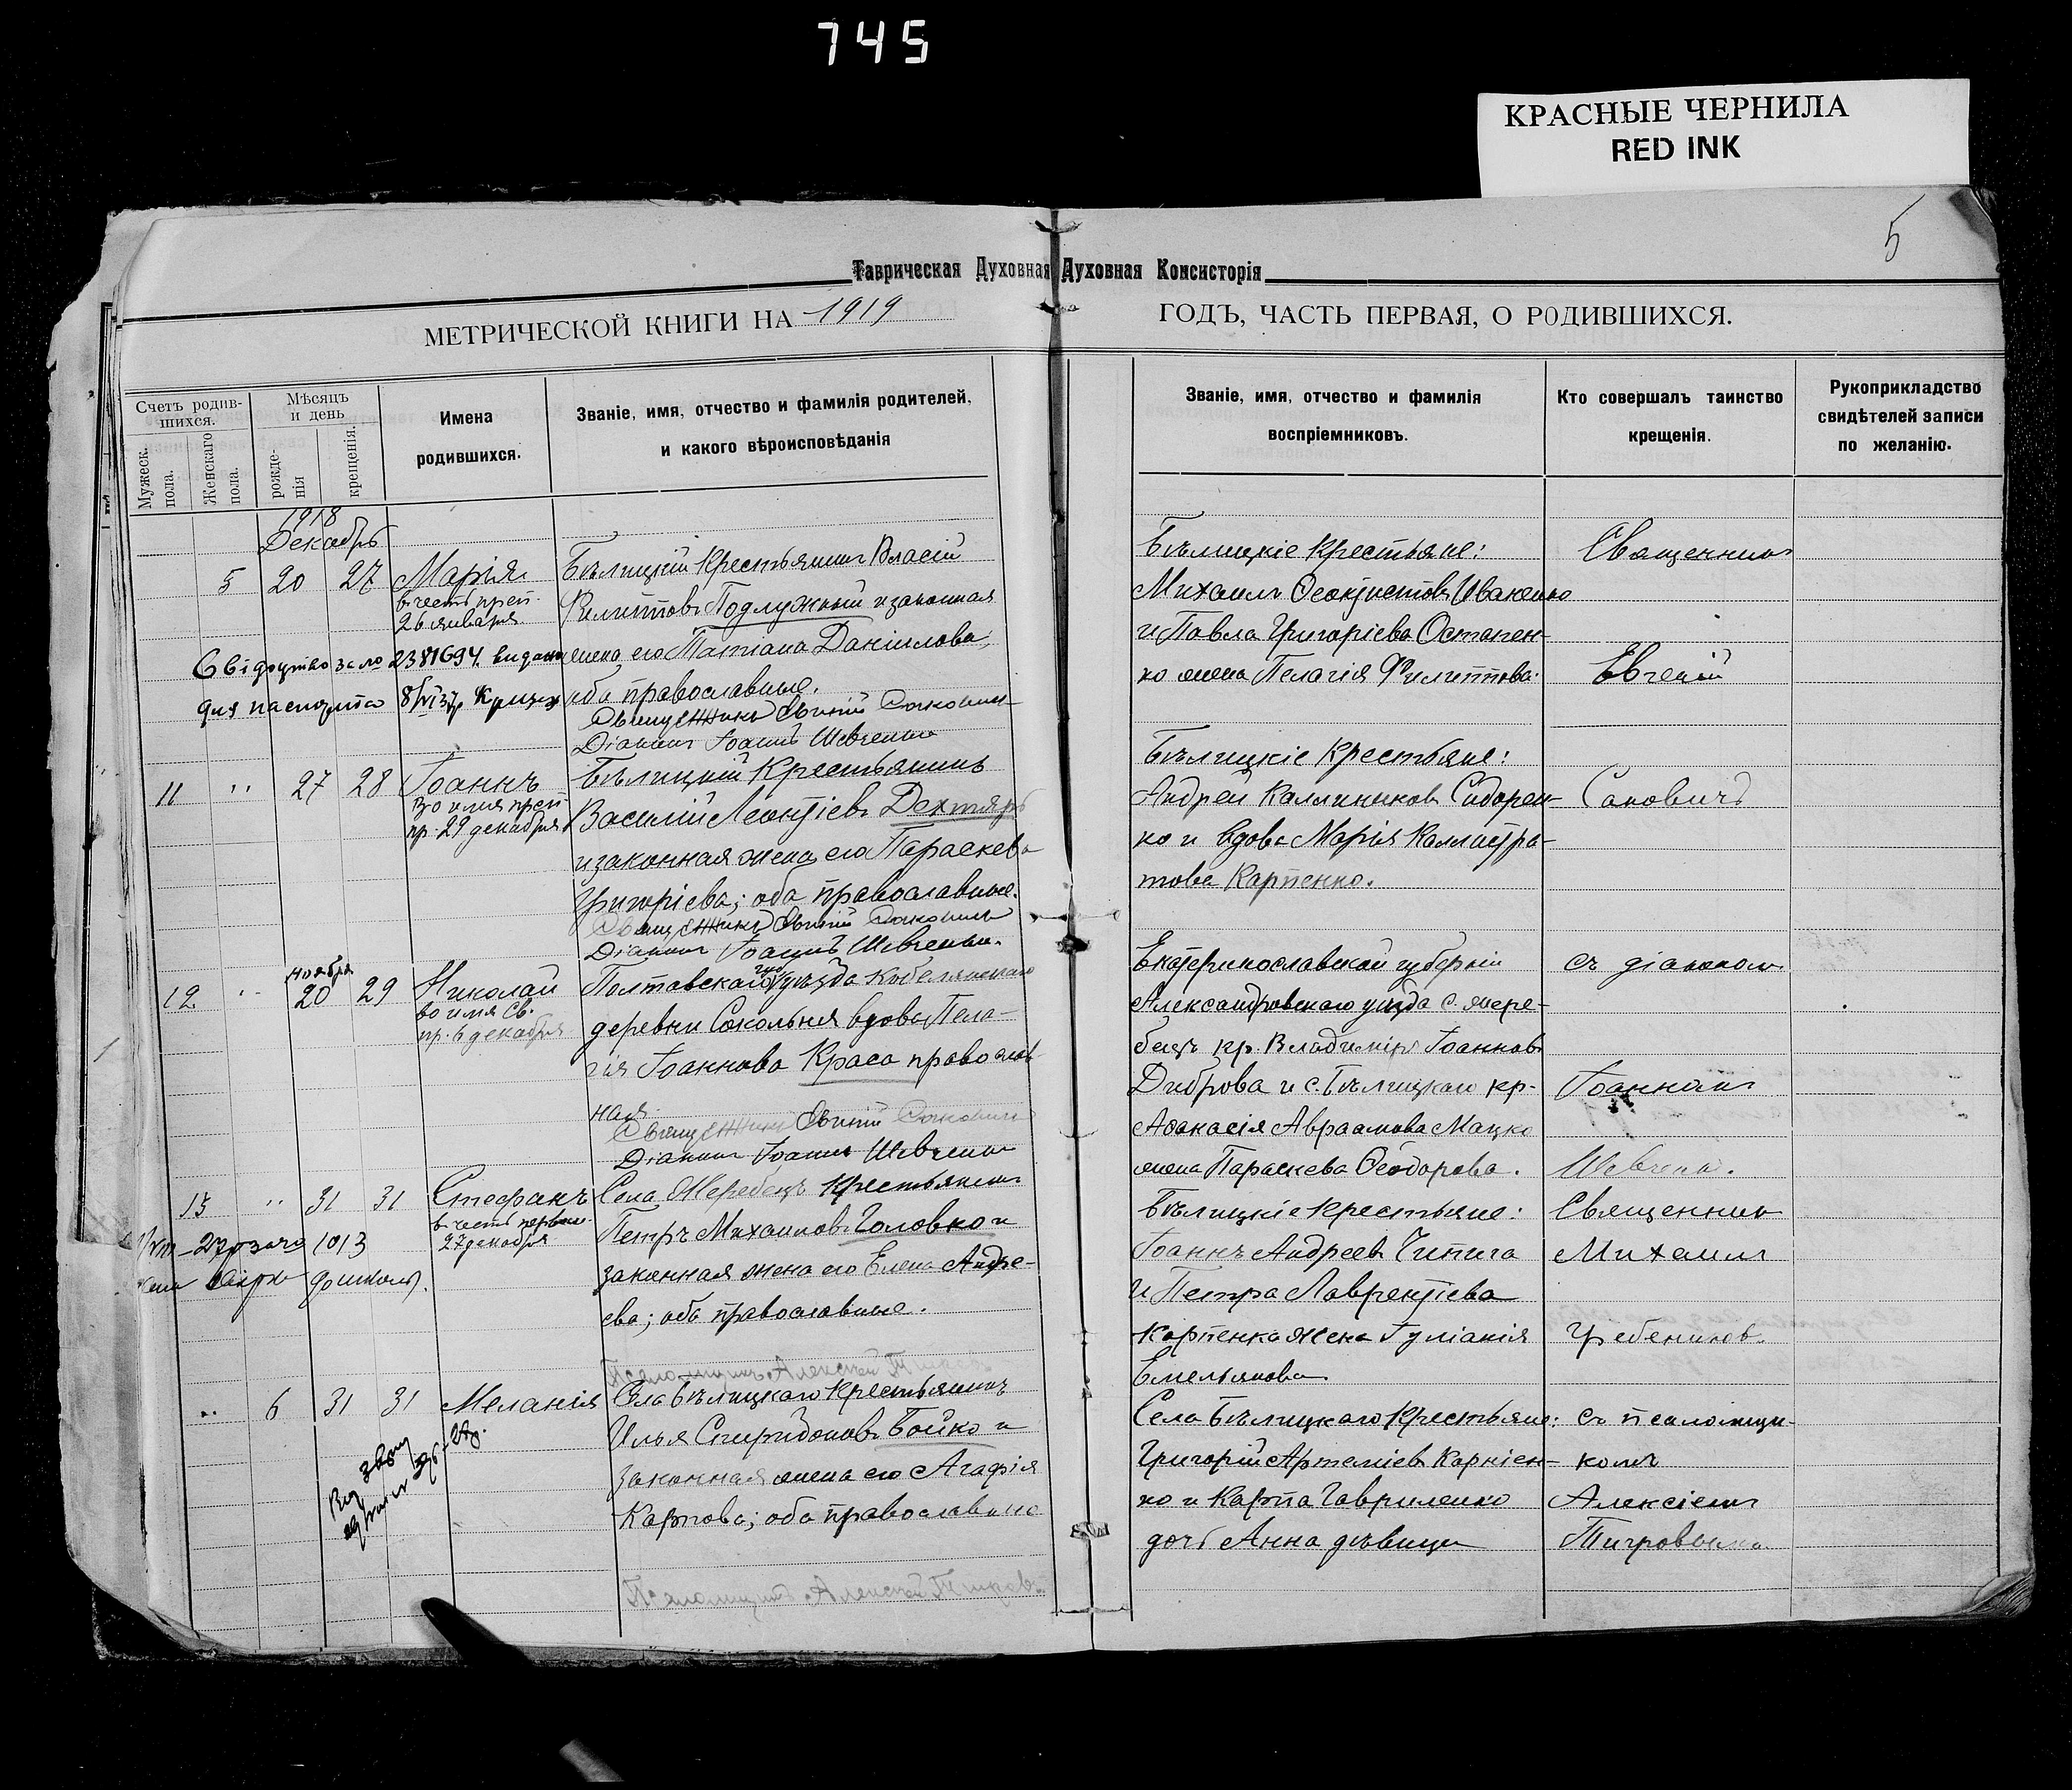 745
КРАСНЫЕ ЧЕРНИЛА
RED INK
5
Таврическая Духовная Духовная Консисторія
МЕТРИЧЕСКОЙ КНИГИ НА 1919 ГОДЪ, ЧАСТЬ ПЕРВАЯ, О РОДИВШИХСЯ.
Счетъ родив-
шихся.
Мужеск. пола.
Женскаго пола.
Мѣсяцъ
и день
рожде-
нія
крещенія.
Имена
родившихся.
Званіе, имя, отчество и фамилія родителей,
и какого вѣроисповѣданія
Званіе, имя, отчество и фамилія
воспріемниковъ.
Кто совершалъ таинство
крещенія.
Рукоприкладство
свидѣтелей записи
по желанію.
1918
Декабрь
5 20 27 Марія
в честь преп.
26 января.
Бѣлицкій Крестьянинъ Власій
Филипповъ Подлужный и законная
жена его Татіана Даніилова,
оба православные.
Свідоцтво за № 2381694 видано
для паспорта
Священникъ Евгеній Саковичъ
Діаконъ Іоаннъ Шевченко
Бѣлицкіе Крестьяне:
Михаилъ Ѳеоктистовъ Иваненко
и Павла Григоріева Остапен-
ко жена Пелагія Филиппова.
Священник
Евгеній
11 " 27 28 Іоаннъ
во имя преп
пр. 29 декабря
Бѣлицкій Крестьянинъ
Василій Леонтіевъ Дехтярь
и законная жена его Параскева
Григоріева; оба православные.
Священникъ Евгеній Саковичъ
Діаконъ Іоаннъ Шевченко.
Бѣлицкіе Крестьяне:
Андрей Каллиниковъ Сидорен-
ко и вдова Марія Каллистра-
това Карпенко.
Саковичъ
12 " ноября 20 29 Николай
во имя Св.
пр. 6 декабря
Полтавской губ уѣзда Кобелякскаго
деревни Сокольня вдова Пела-
гія Іоаннова Краса православ-
ная
Священникъ Евгеній Саковичъ
Діаконъ Іоаннъ Шевченко
Екатеринославской губерніи
Александровскаго уѣзда с. Жере-
бецъ кр. Владиміръ Іоанновъ
Диброва и с. Бѣлицкаго кр.
Аѳанасія Авраамова Мацко
жена Параскева Ѳеодорова.
съ діаконом
Іоанном
Шевченко.
13 " 31 31 Стефанъ
в честь первом.
27 декабря
Села Жеребецъ Крестьянинъ
Петръ Михаиловъ Головко и
законная жена его Елена Андре-
ева; оба православные.
1013
Псаломщикъ Алексѣй Тигровъ
Бѣлицкіе Крестьяне:
Іоаннъ Андреевъ Чипига
и Петра Лаврентіева
Карпенка жена Іуліанія
Емельянова
Священник
Михаил
Гребенников
" 6 31 31 Меланія
Села Бѣлицкаго Крестьянинъ
Илья Спиридоновъ Бойко и
законная жена его Агафія
Карпова; оба православные
Псаломщикъ Алексѣй Тигровъ
Села Бѣлицкаго Крестьяне:
Григорій Артеміевъ Карніен-
ко и Карпа Гавриленко
дочь Анна дѣвица
съ псаломщи-
комъ
Алексіем
Тигровымъ